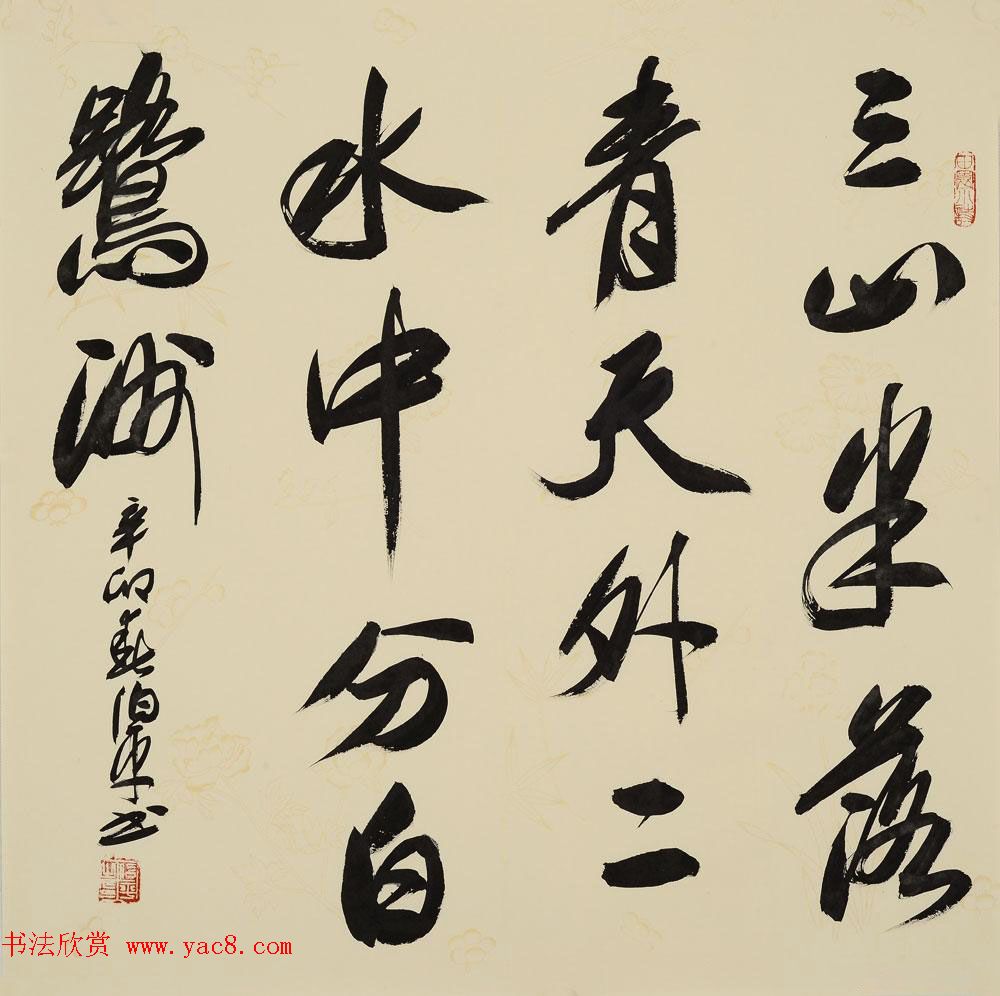 三山半落
青天外二
水中分白
鷺洲
辛卯
书
书法欣赏 www.yac8.com